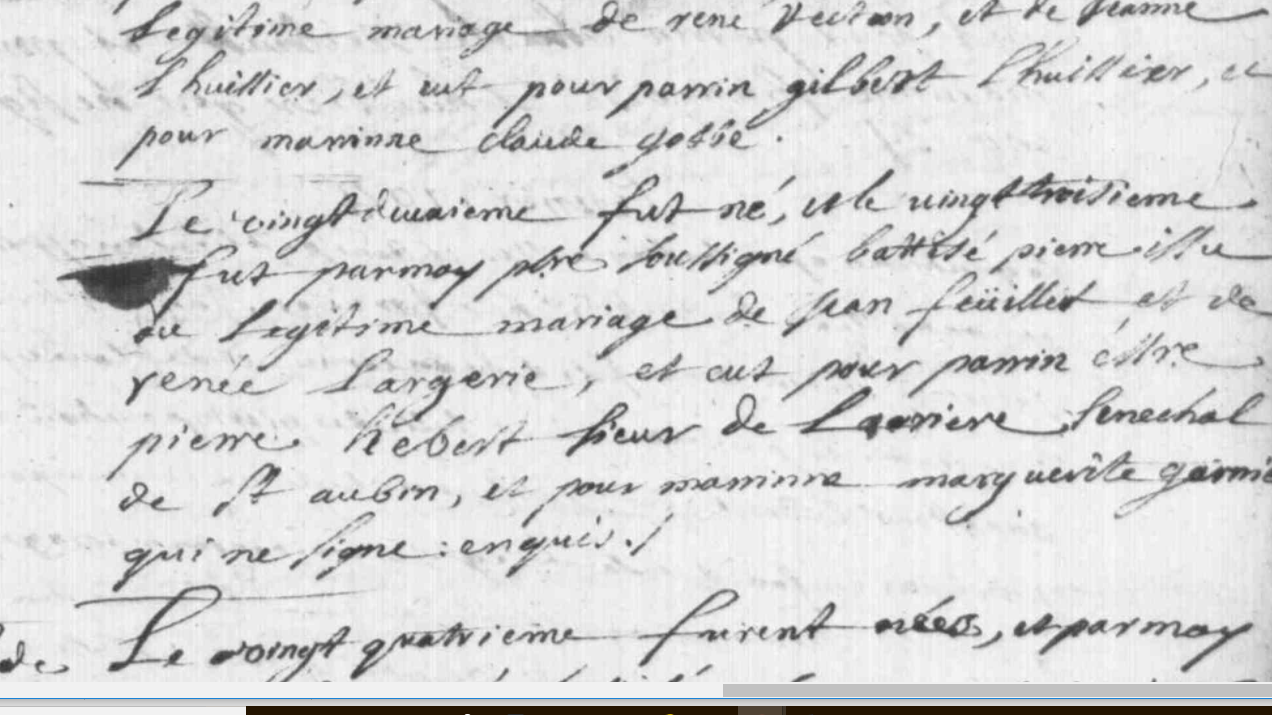 Legitime mariage de rene Vecton, et de Jeanne
l'huillier, et eut pour parrin gilbert l'huillier, et
pour marrinne claude gotté.
Le vingt duxieme fut né, et le vingt troisieme
fut par moy pbre soussigné battisé pierre issu
du Legitime mariage de Jean feüillet et de
renée Largerie, et eut pour parrin
pierre hebert sieur de Senechal
de St aubin, et pour marrinne marguerite garnie
qui ne signe : enquis ./
de Le vingt quatrieme furent nées, et par moy